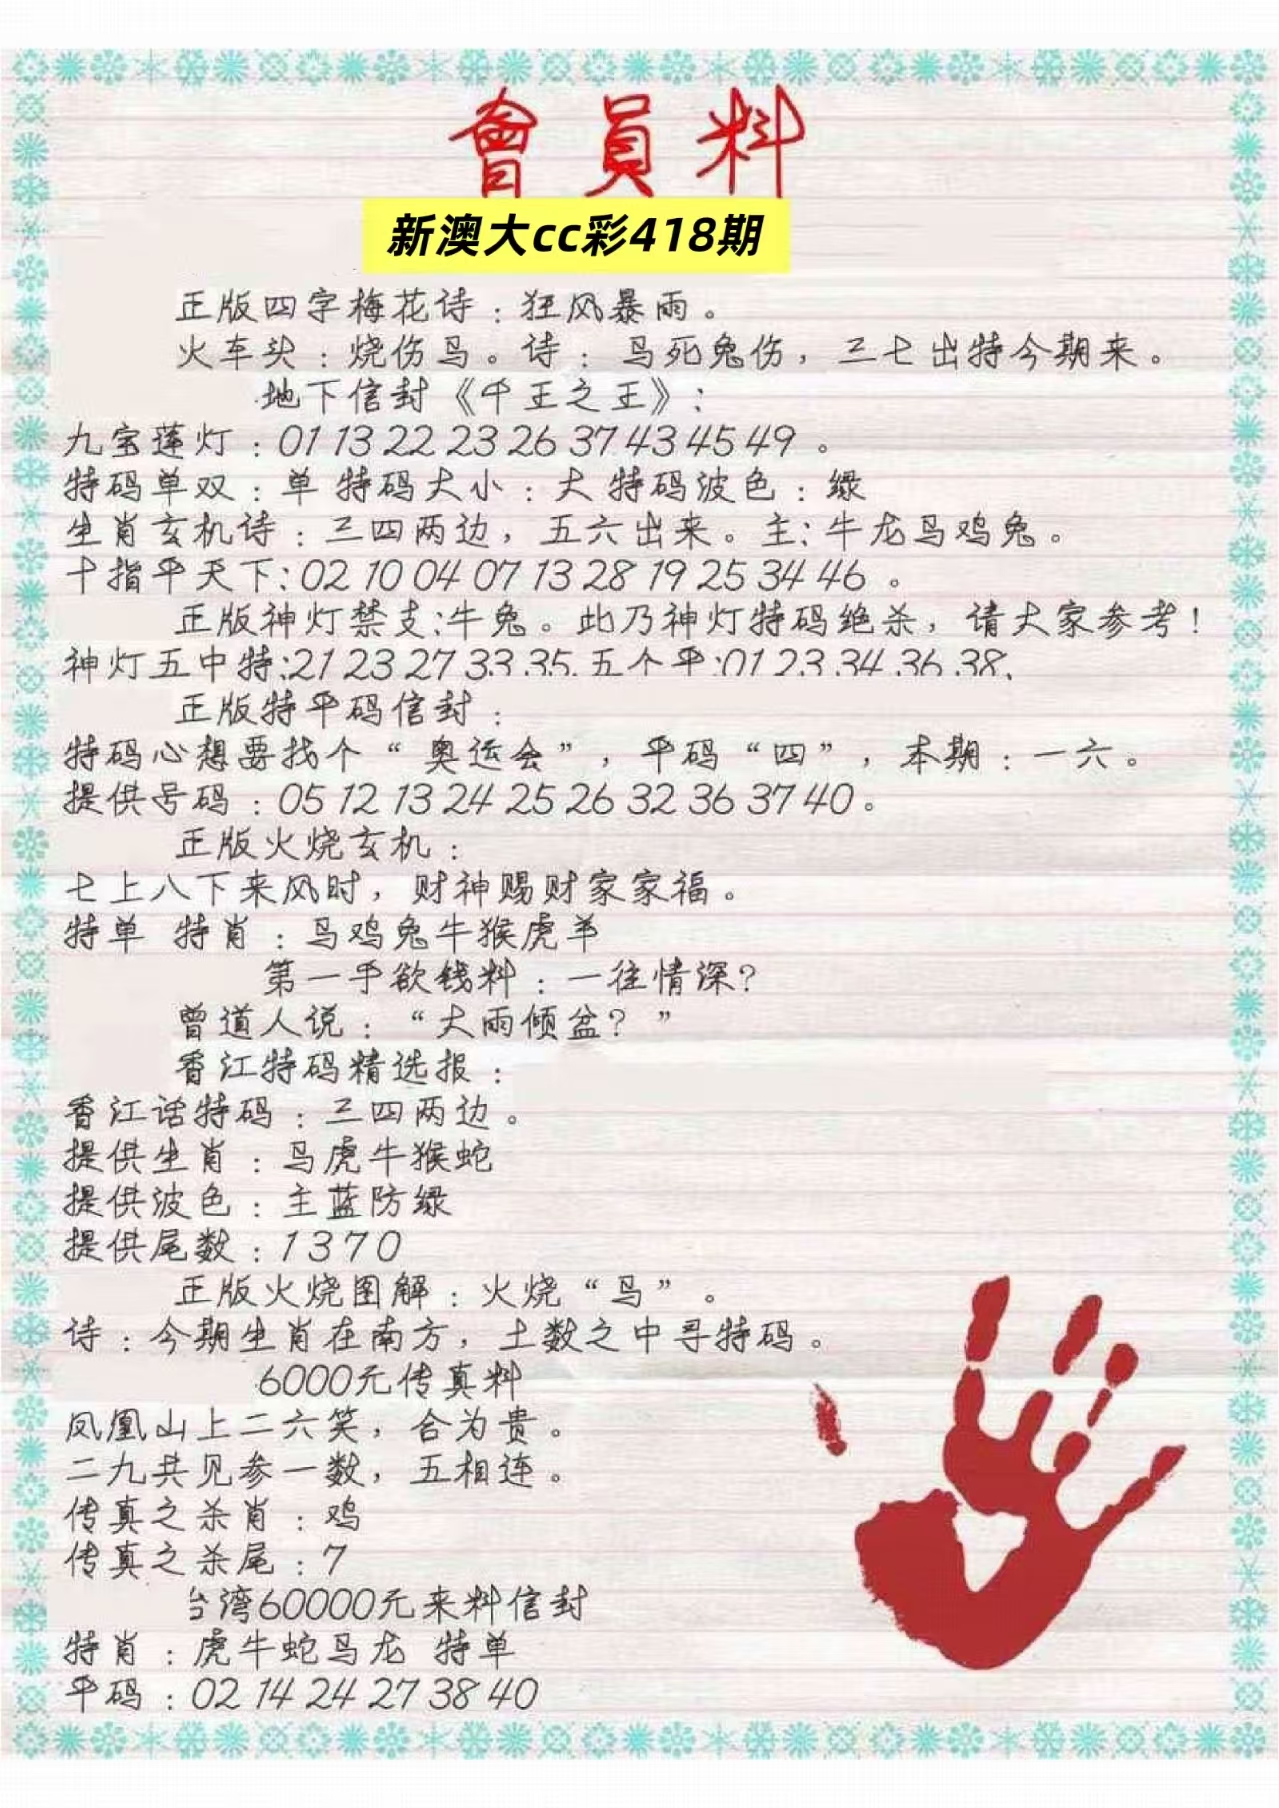 會員料
新澳大cc彩418期
正版四字梅花诗：狂风暴雨。
火车头：烧伤马。诗：马死兔伤，三七出特今期来。
地下信封《千王之王》：
九宝莲灯：01 13 22 23 26 37 43 45 49 。
特码单双：单 特码大小：大 特码波色：绿
生肖玄机诗：三四两边，五六出来。主：牛龙马鸡兔。
十指平天下：02 10 04 07 13 28 19 25 34 46 。
正版神灯禁支：牛兔。此乃神灯特码绝杀，请大家参考！
神灯五中特：21 23 27 33 35. 五个平：01 23 34 36 38.
正版特平码信封：
特码心想要找个“奥运会”，平码“四”，本期：一六。
提供号码：05 12 13 24 25 26 32 36 37 40。
正版火烧玄机：
七上八下来风时，财神赐财家家福。
特单 特肖：马鸡兔牛猴虎羊
第一手欲钱料：一往情深？
曾道人说：“大雨倾盆？”
香江特码精选报：
香江话特码：三四两边。
提供生肖：马虎牛猴蛇
提供波色：主蓝防绿
提供尾数：1 3 7 0
正版火烧图解：火烧“马”。
诗：今期生肖在南方，土数之中寻特码。
6000元传真料
凤凰山上二六笑，合为贵。
二九共见参一数，五相连。
传真之杀肖：鸡
传真之杀尾：7
台湾60000元来料信封
特肖：虎牛蛇马龙 特单
平码：02 14 24 27 38 40